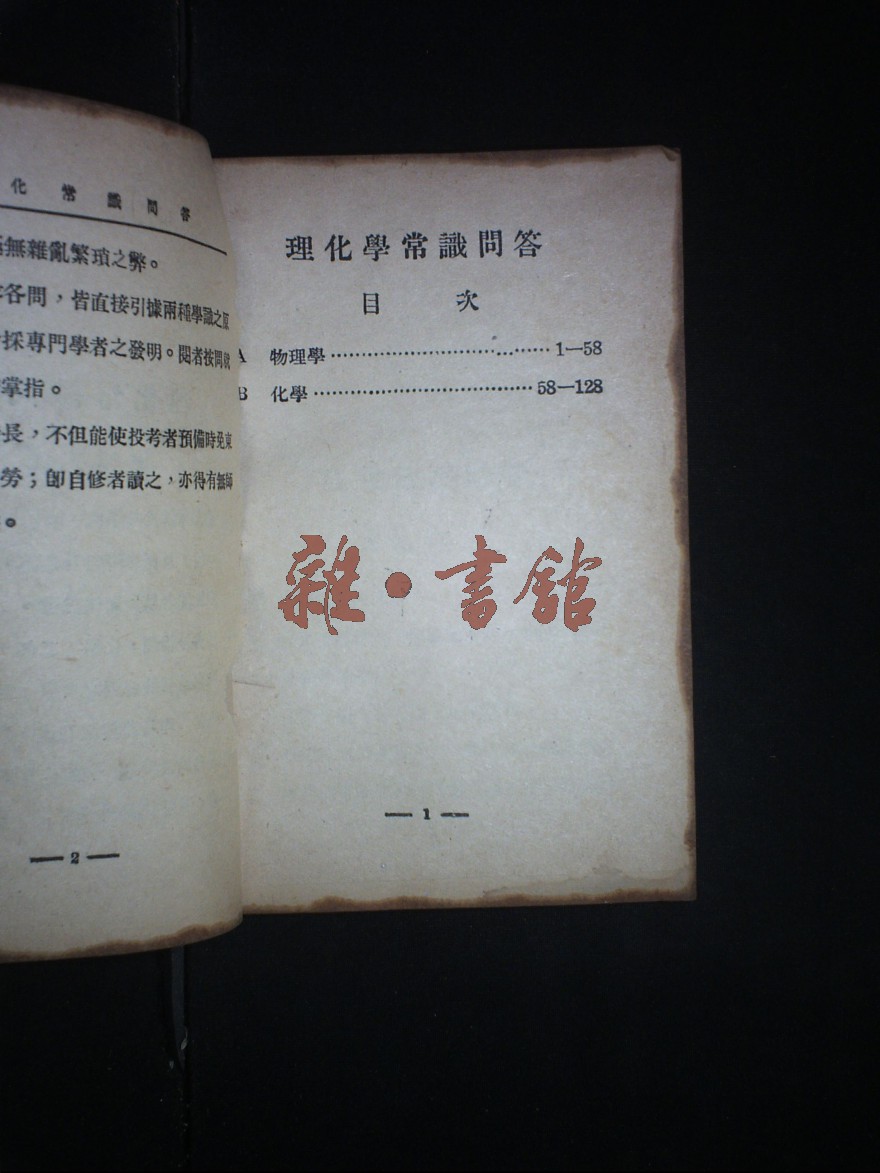 化常識問答
無雜亂繁瑣之弊。
各問，皆直接引據兩種學識之原
採專門學者之發明。閱者按問就
掌指。
長，不但能使投考者預備時免東
勞；卽自修者讀之，亦得有無師
。
— 2 —
理化學常識問答
目 次
A 物理學……………………………1—58
B 化學………………………………58—128
雜·書館
— 1 —